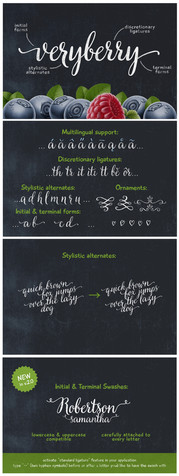 initial
forms
discretionary
ligatures
veryberry
stylistic
alternates
terminal
forms
Multilingual support:
Discretionary ligatures:
Stylistic alternates:
Ornaments:
a d h l m n r u
Initial & terminal forms:
Stylistic alternates:
quick brown
fox jumps
over the lazy
dog
quick brown
fox jumps
over the lazy
dog
NEW
in v2.0
Initial & Terminal Swashes:
Robertson
samantha
lowercase & uppercase
compatible
carefully attached to
every letter
activate "standard ligature" feature in your application